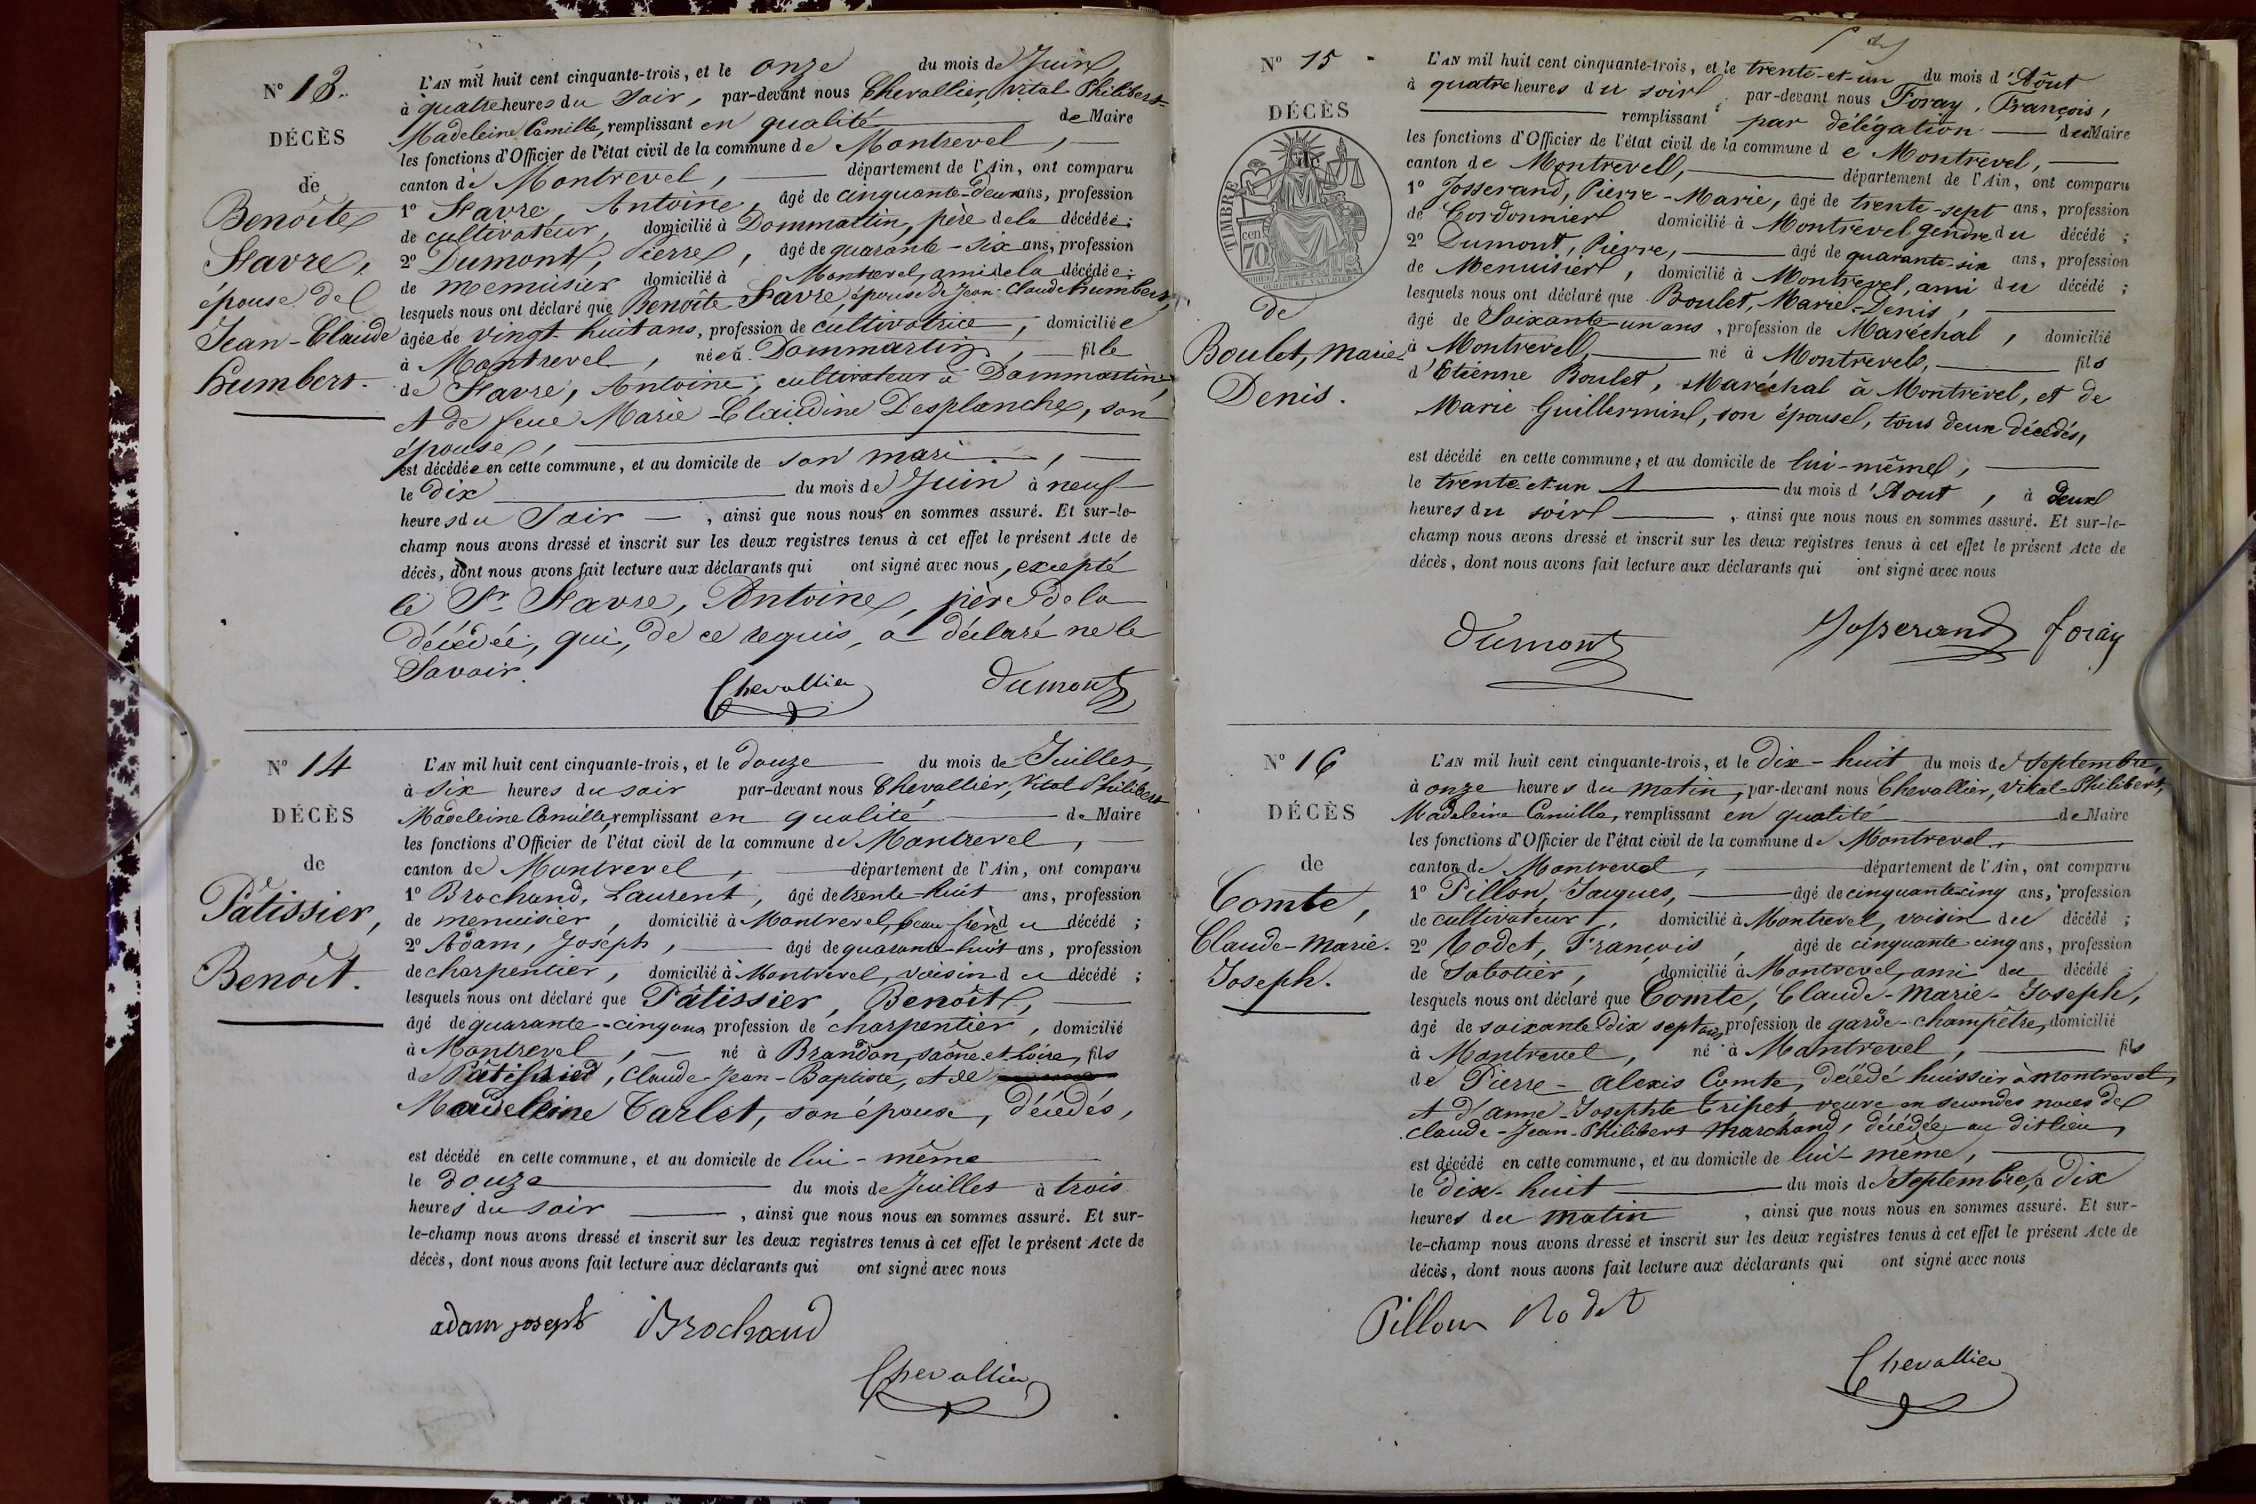 N° 13.
DÉCÈS
de
Benoîte
Favre,
épouse de
Jean-Claude
humbert.
L'AN mil huit cent cinquante-trois, et le onze du mois de Juin,
à quatre heures du Soir, par-devant nous Chevallier, Vital Philibert
Madeleine Camille, remplissant en qualité de Maire
les fonctions d'Officier de l'état civil de la commune de Montrevel,
canton de Montrevel, département de l'Ain, ont comparu
1° Favre, Antoine, âgé de cinquante-deux ans, profession
de cultivateur, domicilié à Dommartin, père de la décédée;
2° Dumont, Pierre, âgé de quarante-six ans, profession
de menuisier domicilié à Montrevel, ami de la décédée;
lesquels nous ont déclaré que Benoîte Favre, épouse de Jean-Claude humbert,
âgée de vingt-huit ans, profession de cultivatrice, domiciliée
à Montrevel, née à Dommartin, fille
de Favre, Antoine, cultivateur à Dommartin,
et de feue Marie-Claudine Desplanche, son
épouse,
est décédée en cette commune, et au domicile de son mari,
le dix du mois de Juin à neuf
heures du Soir, ainsi que nous nous en sommes assuré. Et sur-le-
champ nous avons dressé et inscrit sur les deux registres tenus à cet effet le présent Acte de
décès, dont nous avons fait lecture aux déclarants qui ont signé avec nous, excepté
le Sr. Favre, Antoine, père de la
décédée, qui, de ce requis, a déclaré ne le
Savoir.
Chevallier Dumont
N° 14
DÉCÈS
de
Pâtissier,
Benoît.
L'AN mil huit cent cinquante-trois, et le douze du mois de Juillet,
à six heures du soir par-devant nous Chevallier, Vital Philibert
Madeleine Camille, remplissant en qualité de Maire
les fonctions d'Officier de l'état civil de la commune de Montrevel,
canton de Montrevel, département de l'Ain, ont comparu
1° Brochand, Laurent, âgé de trente-huit ans, profession
de menuisier, domicilié à Montrevel, beau frère du décédé;
2° Adam, Joseph, âgé de quarante-huit ans, profession
de charpentier, domicilié à Montrevel, voisin du décédé;
lesquels nous ont déclaré que Pâtissier, Benoît,
âgé de quarante-cinq ans profession de charpentier, domicilié
à Montrevel, né à Brandon, saône et Loire, fils
de Pâtissier, Claude-Jean-Baptiste, et de
Madeleine Carlet, son épouse, décédés,
est décédé en cette commune, et au domicile de lui-même
le douze du mois de Juillet à trois
heures du soir, ainsi que nous nous en sommes assuré. Et sur-
le-champ nous avons dressé et inscrit sur les deux registres tenus à cet effet le présent Acte de
décès, dont nous avons fait lecture aux déclarants qui ont signé avec nous
adam joseph Brochand
Chevallier
N° 15
DÉCÈS
TIMBRE
70 cen
de
Boulet, Marie
Denis.
L'AN mil huit cent cinquante-trois, et le trente-et-un du mois d'Aôut
à quatre heures du soir, par-devant nous Foray, François,
remplissant par délégation du Maire
les fonctions d'Officier de l'état civil de la commune de Montrevel,
canton de Montrevel, département de l'Ain, ont comparu
1° Josserand, Pierre-Marie, âgé de trente-sept ans, profession
de Cordonnier domicilié à Montrevel gendre du décédé;
2° Dumont, Pierre, âgé de quarante-six ans, profession
de Menuisier, domicilié à Montrevel, ami du décédé;
lesquels nous ont déclaré que Boulet, Marie-Denis,
âgé de Soixante-un ans, profession de Maréchal, domicilié
à Montrevel, né à Montrevel, fils
d'Etienne Boulet, Maréchal à Montrevel, et de
Marie Guillermin, son épouse, tous deux décédés,
est décédé en cette commune, et au domicile de lui-même,
le trente-et-un du mois d'Aout, à deux
heures du soir, ainsi que nous nous en sommes assuré. Et sur-le-
champ nous avons dressé et inscrit sur les deux registres tenus à cet effet le présent Acte de
décès, dont nous avons fait lecture aux déclarants qui ont signé avec nous
Dumont Josserand foray
N° 16
DÉCÈS
de
Comte,
Claude-Marie.
Joseph.
L'AN mil huit cent cinquante-trois, et le Dix-huit du mois de Septembre,
à onze heures du matin, par-devant nous Chevallier, Vital-Philibert,
Madeleine Camille, remplissant en qualité de Maire
les fonctions d'Officier de l'état civil de la commune de Montrevel,
canton de Montrevel, département de l'Ain, ont comparu
1° Pillon, Jacques, âgé de cinquante cinq ans, profession
de cultivateur, domicilié à Montrevel, voisin du décédé;
2° Rodet, François, âgé de cinquante cinq ans, profession
de Sabotier, domicilié à Montrevel, ami du décédé;
lesquels nous ont déclaré que Comte, Claude-Marie-Joseph,
âgé de soixante dix sept ans, profession de garde-champêtre, domicilié
à Montrevel, né à Montrevel, fils
de Pierre-alexis Comte, décédé huissier à montrevel,
et d'anne-Josephte Tripet, veuve en secondes noces de
claude-Jean-Philibert Marchand, décédée au dit lieu,
est décédé en cette commune, et au domicile de lui-même,
le Dix-huit du mois de Septembre, à Dix
heures du matin, ainsi que nous nous en sommes assuré. Et sur-
le-champ nous avons dressé et inscrit sur les deux registres tenus à cet effet le présent Acte de
décès, dont nous avons fait lecture aux déclarants qui ont signé avec nous
Pillon Rodet
Chevallier